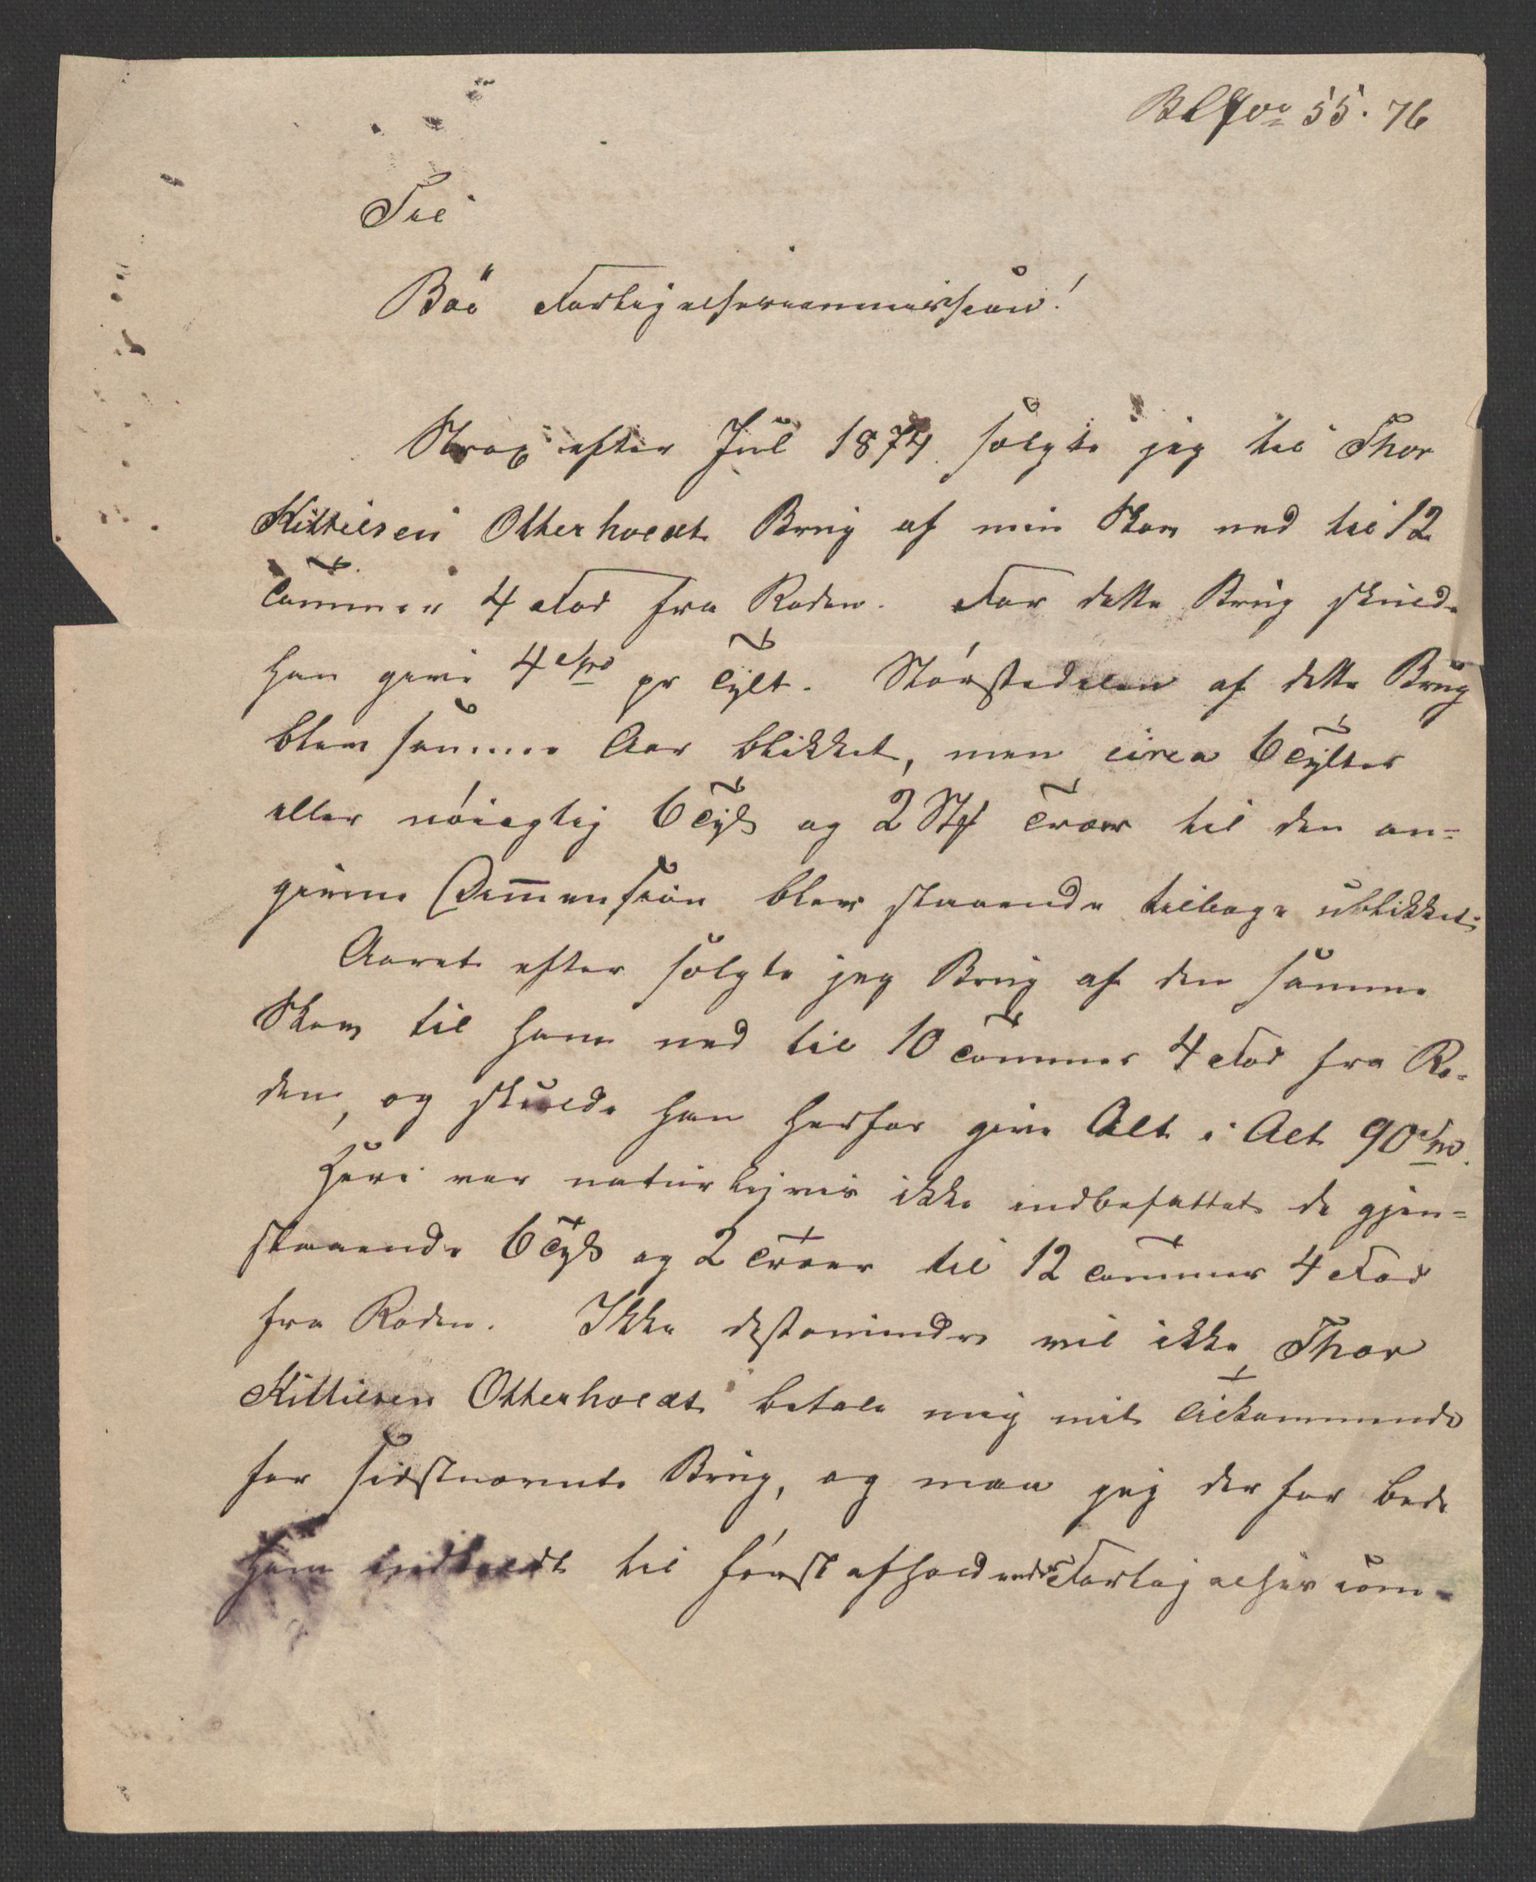 55. 76
Til
Böö Forligelsescommission!
Strax efter Jul 1874 solgte jeg til Thor
Kittilsen Otterholdt Brug af min Skov ned til 12
Tommer 4 Fod fra Roden. For dette Brug skulde
han give 4 pr Tylt. Störstedelen af dette Brug
blev samme Aar blikket, men circa 6 Tylter
eller nöiagtig 6 Tylt og 2 Stk Træer til den an-
givne Dimension blev staaende tilbage ublikket.
Aaret efter solgte jeg Brug af den samme
Skov til ham ned til 10 Tommer 4 Fod fra Ro-
den, og skulde han herfor give Alt i Alt 90
Heri var naturligvis ikke indbefattet de gjen-
staaende 6 Tylt og 2 Træer til 12 Tommer 4 Fod
fra Roden. Ikke destomindre vil ikke Thor
Kittilsen Otterholdt betale mig mit Tilkommende
for sidstnævnte Brug, og maa jeg derfor bede
ham indkaldt til först afholdende Forligelsescom-